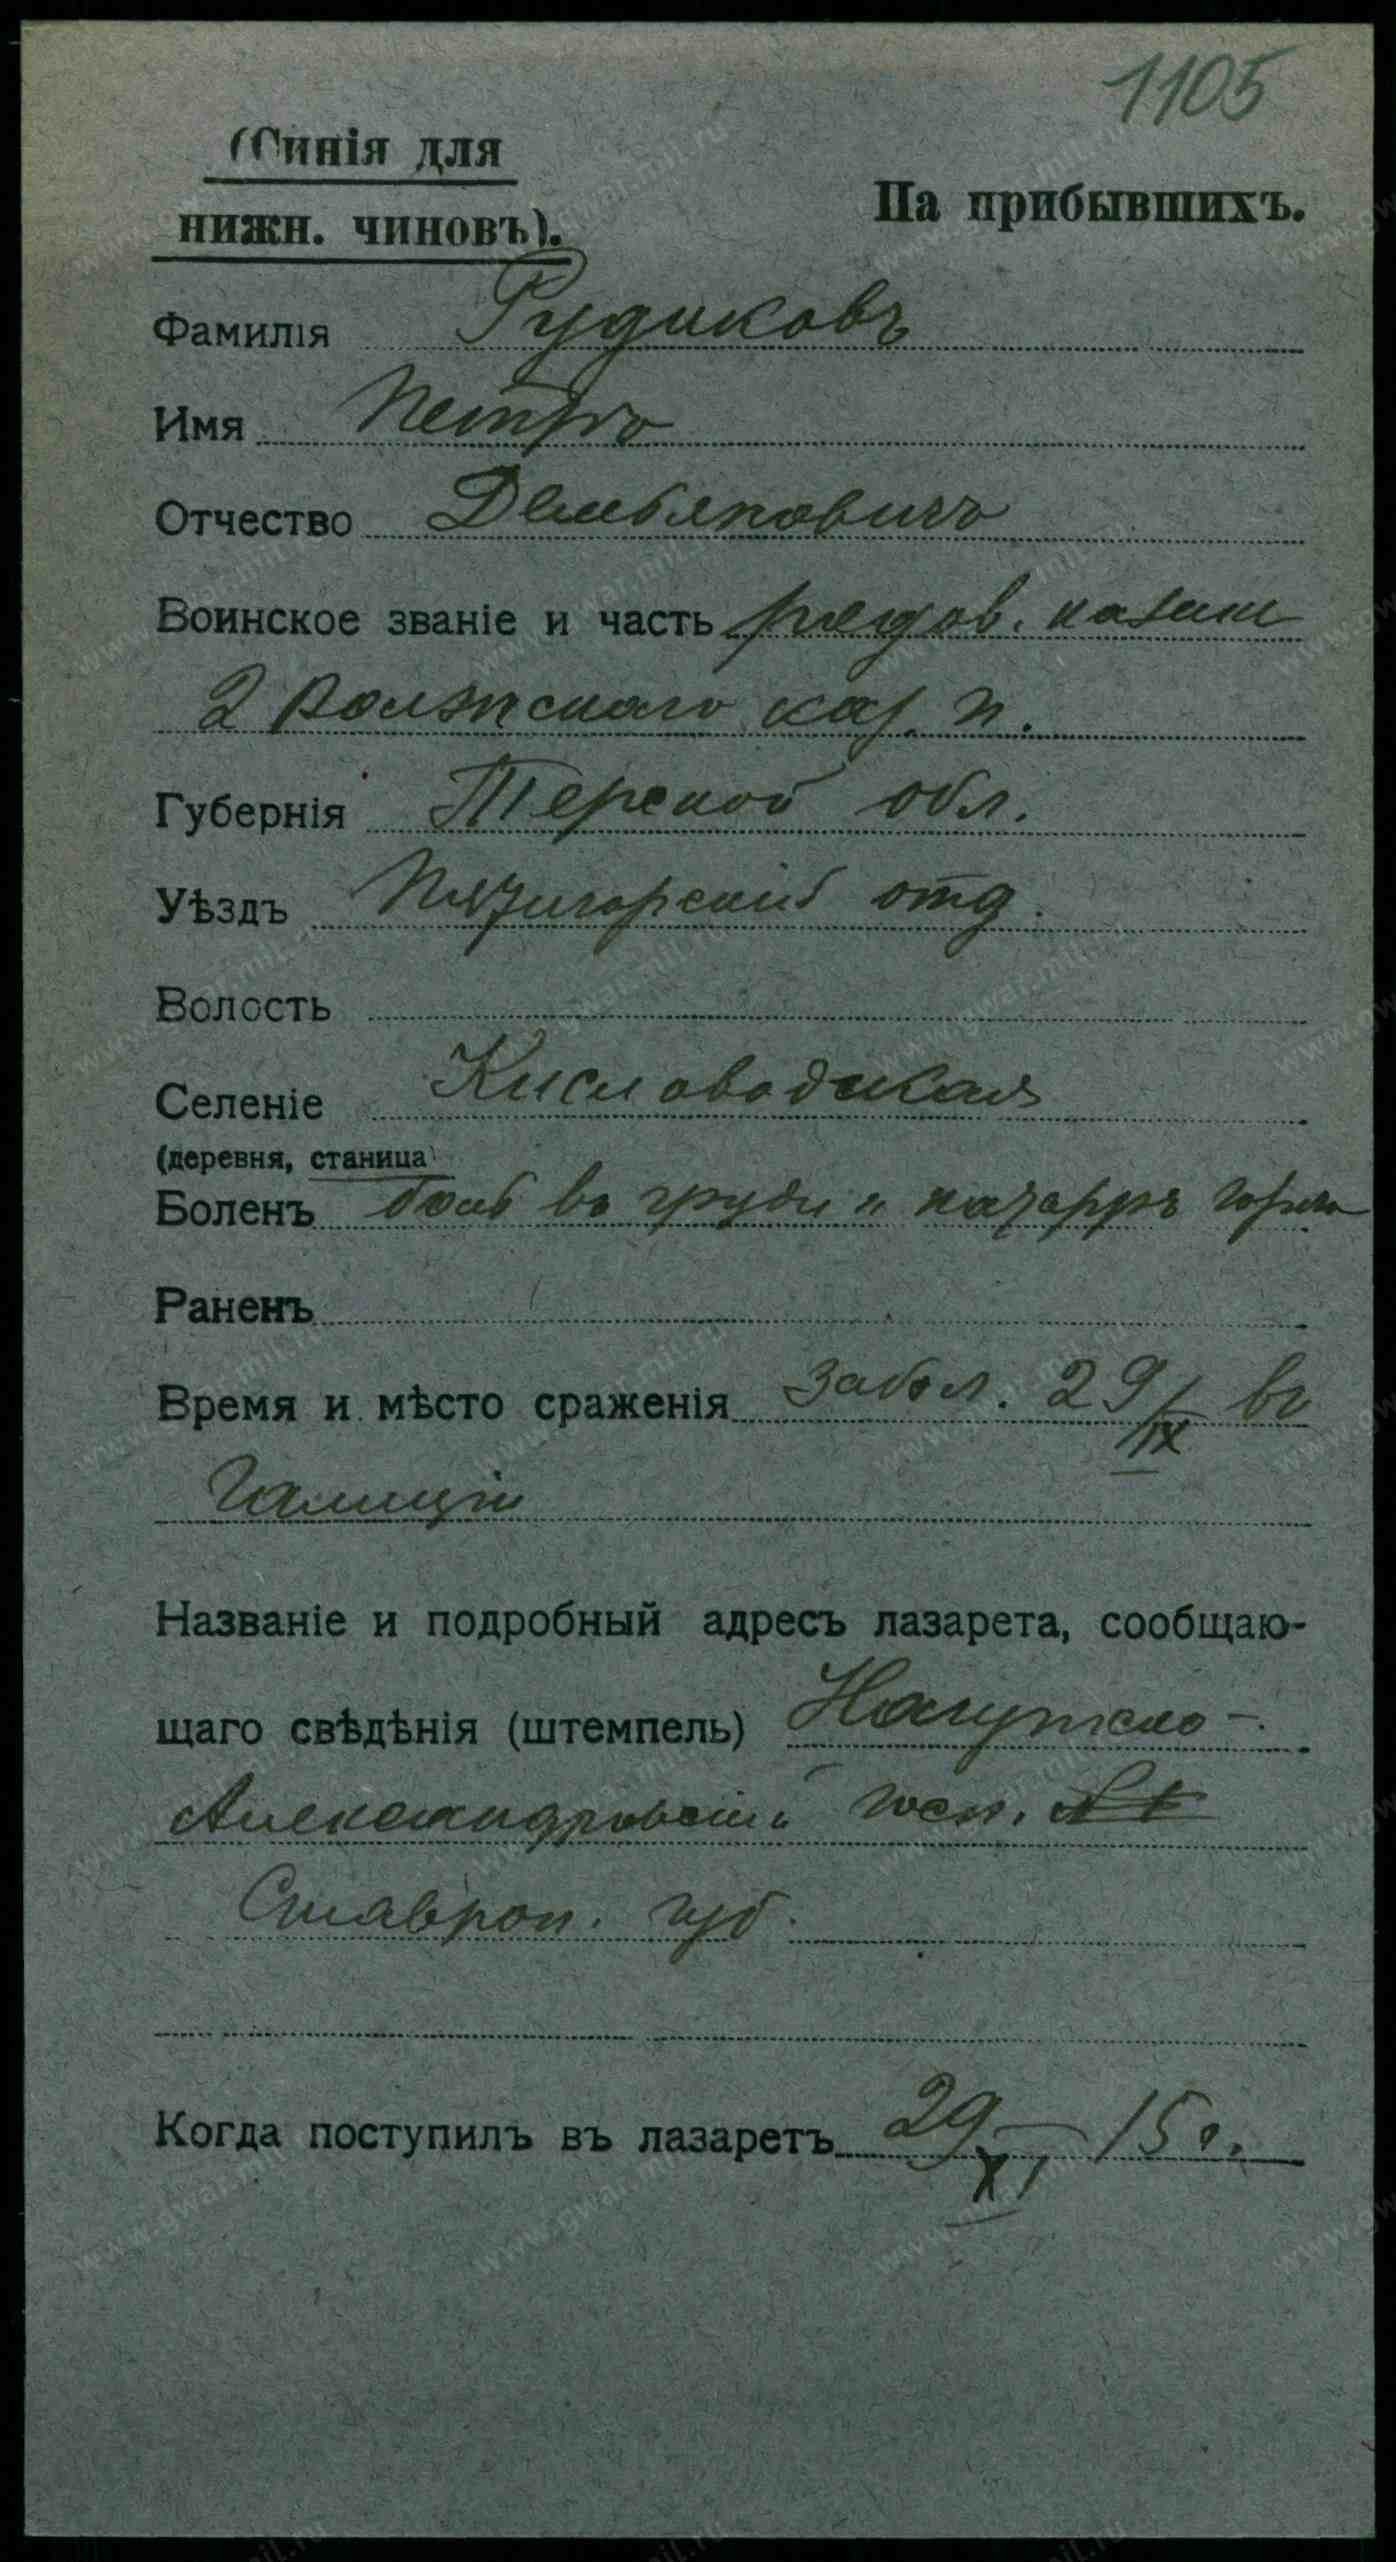 1105
(Синія для
нижн. чиновъ).
На прибывшихъ.
Фамилія Рудиковъ
Имя Петръ
Отчество Демьяновичъ
Воинское званіе и часть рядов. казакъ
2 Волжскаго каз. п.
Губернія Терской обл.
Уѣздъ Пятигорскій отд.
Волость
Селеніе Кисловодская
(деревня, станица)
Боленъ боль въ груди и катарръ горла
Раненъ
Время и мѣсто сраженія забол. 29/IX въ
Галиціи
Названіе и подробный адресъ лазарета, сообщаю-
щаго свѣдѣнія (штемпель) Нагутско-
Александровскій госп.
Ставроп. губ.
Когда поступилъ въ лазаретъ 29/XI – 15 г.